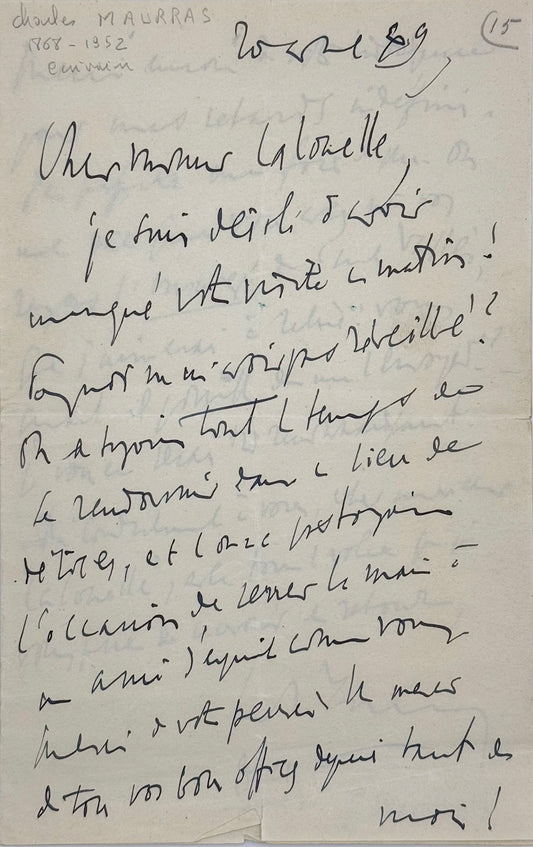 Charles MAURRAS
1868-1952
écrivain
15
20 29
Cher Monsieur Lalouelle,
je suis désolé d'avoir
manqué votre visite ce matin !
Pourquoi ne m'avoir pas réveillé ?
On a toujours tout le temps de
se rendormir dans ce lieu de
et l'on n'a pas toujours
l'occasion de serrer la main à
un ami d'esprit comme vous
Merci de votre pensée,
de tous vos bons offices depuis tant de
mois !